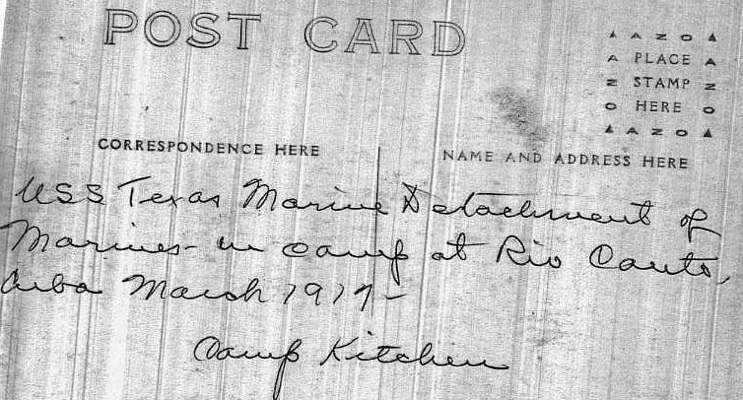 POST CARD
▲ A Z O ▲
A PLACE A
Z STAMP Z
O HERE O
▲ A Z O ▲
CORRESPONDENCE HERE
NAME AND ADDRESS HERE
USS Texas Marine Detachment of
Marines - in camp at Rio Cauto,
Cuba March 1917 -
Camp Kitchen